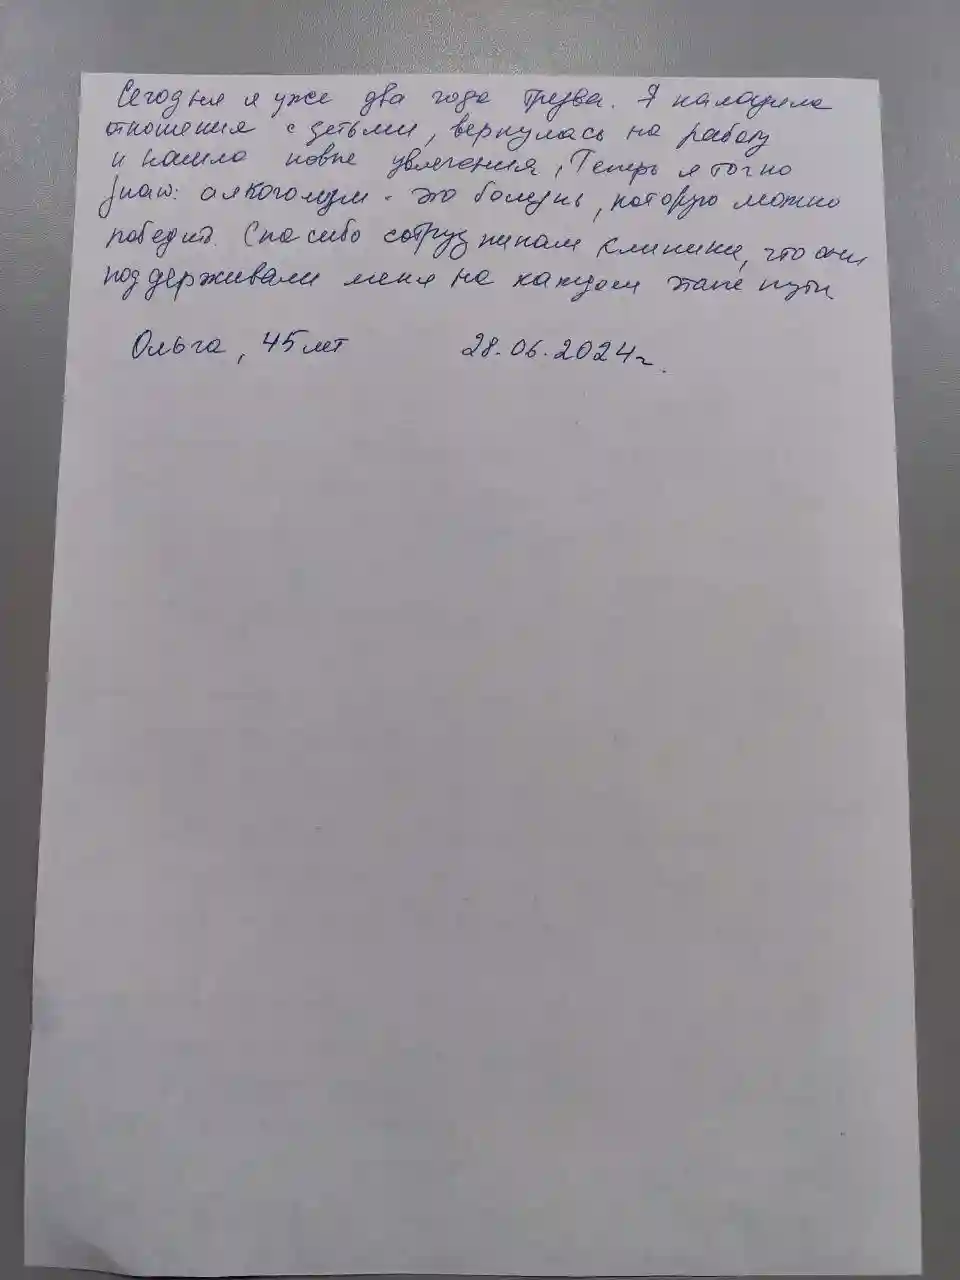 Сегодня я уже два года трезва. Я наладила
отношения с детьми, вернулась на работу
и нашла новые увлечения, Теперь я точно
знаю: алкоголизм - это болезнь, которую можно
победить. Спасибо сотрудникам клиники, что они
поддерживали меня на каждом этапе пути
Ольга, 45 лет 28.06.2024г.